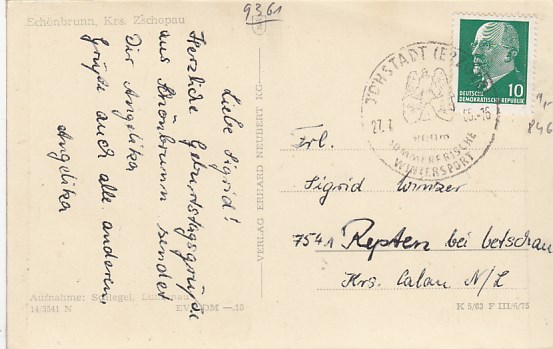 9361
Schönbrunn, Krs. Zschopau
Liebe Sigrid!
Herzliche Geburtstagsgrüße
aus Schönbrunn sendet
Dir Angelika
Grüße auch alle anderen.
Angelika
VERLAG ERHARD NEUBERT KG
Aufnahme: Schlegel,
14/3541 N
EVP DM —.15
DEUTSCHE
DEMOKRATISCHE REPUBLIK
10
JÖHSTADT (ERZ
27.
65.-16
800m
SOMMERFRISCHE
WINTERSPORT
846
Frl.
Sigrid Winzer
7541 Repten bei Vetschau
Krs. Calau N/L
K 5/63 F III/6/75